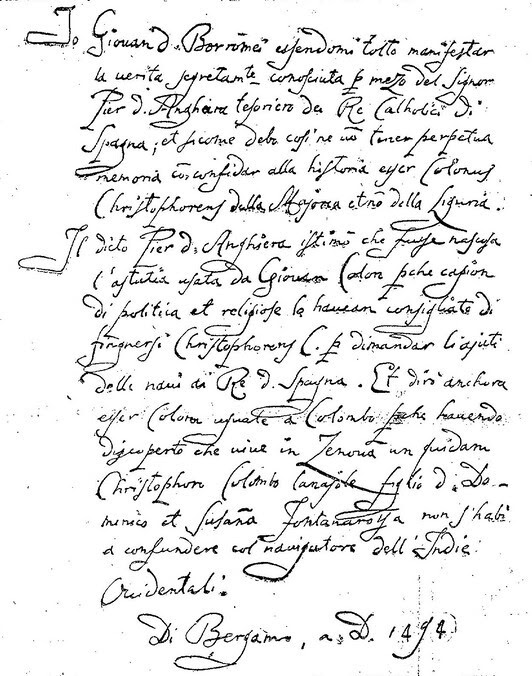 Io Giovan d. Borromei essendomi tolto manifestar
la uerita segretamte conosciuta p mezo del Signor
Pier d. Anghiera tesoriero dei Re Catholici di
Spagna; et sicome debo cosi ne uo tener perpetua
memoria confidar alla historia esser Colonus
Christophorens dalla Majorca et no della Liguria.
Il dicto Pier d. Anghiera istimo che fusse nascosa
l'astutia usata da Giovan Colon pche cagion
di politica et religiose lo hauean consigliato di
fingnersi Christophorens C. p dimandar li ajuti
delle naui al Re d. Spagna. Et diro anchora
esser Colon uguale a Colombo pche hauendo
discoperto che uiue in Jenoua un quidam
Christophoro Colombo Canajole figlio d. Do-
minico et Susana Fontanarossa non s'habi
a confundere col nauigatore dell'Indie
Occidentali.
Di Bergamo, a. D. 1494